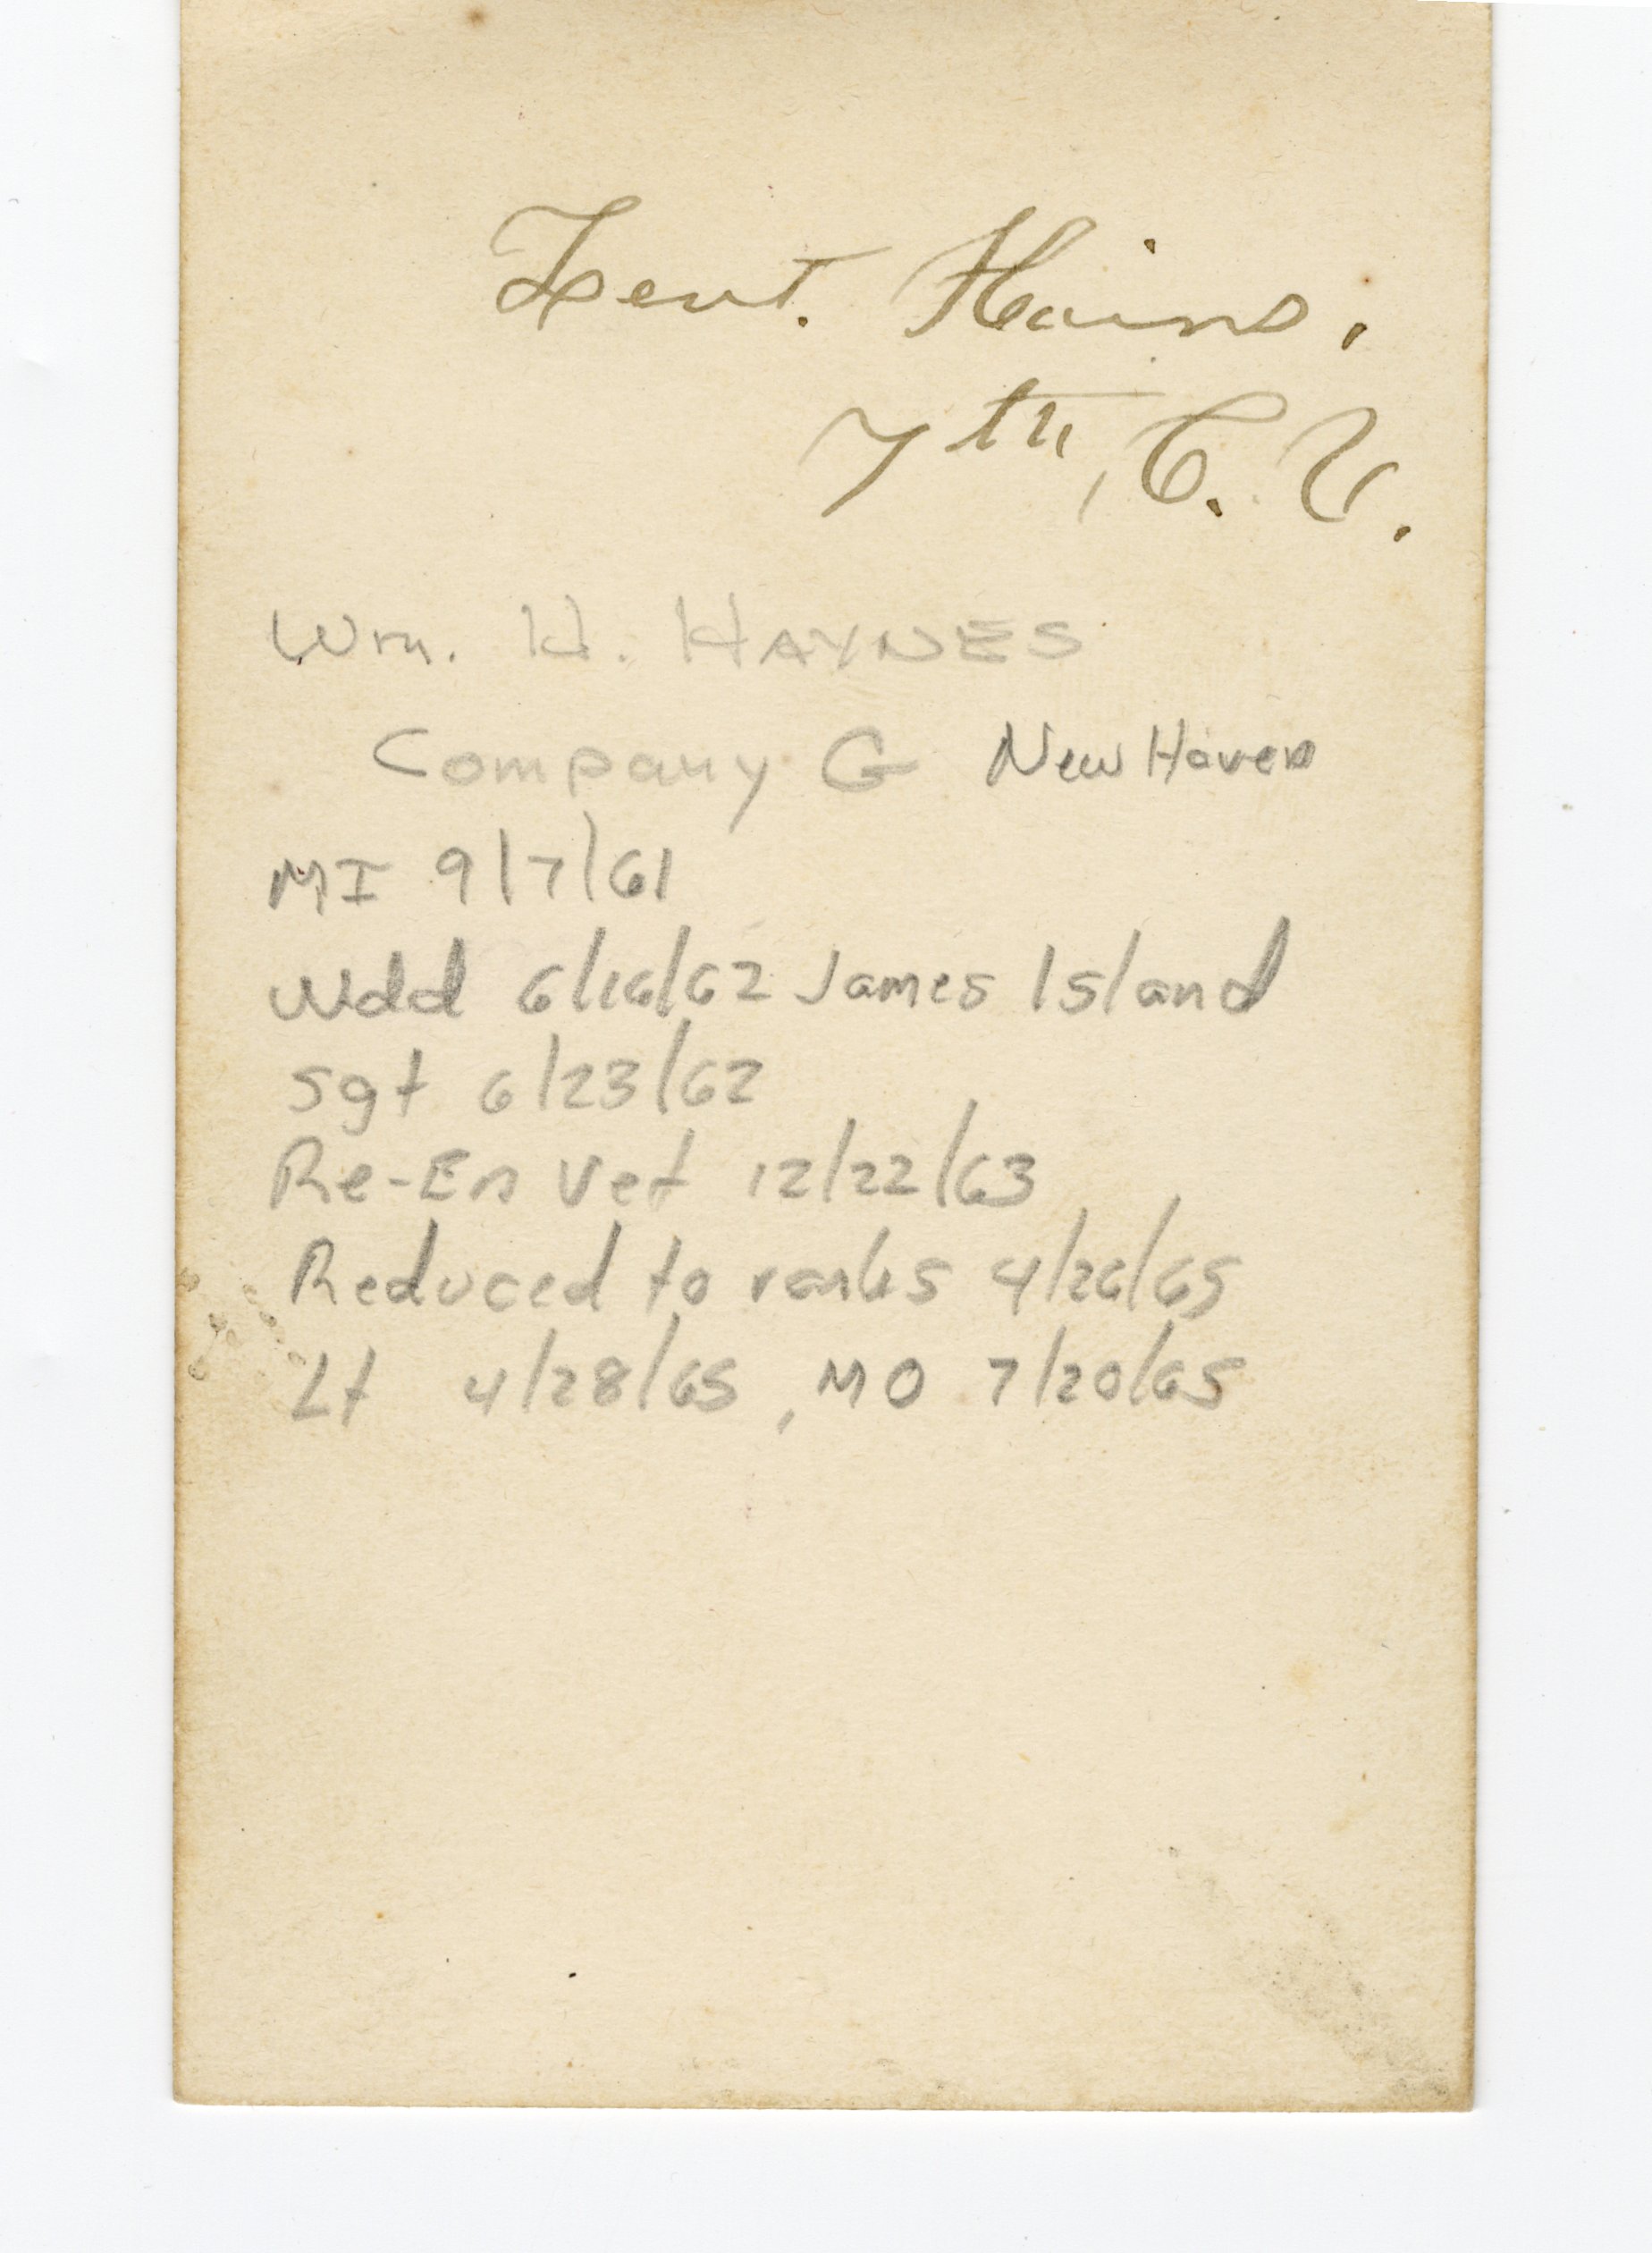 Leut. Hains.
7th, C. V.
Wm. H. HAYNES
Company G New Haven
MI 9/7/61
Wdd 6/16/62 James Island
Sgt 6/23/62
Re-En Vet 12/22/63
Reduced to ranks 4/26/65
Lt 4/28/65, MO 7/20/65